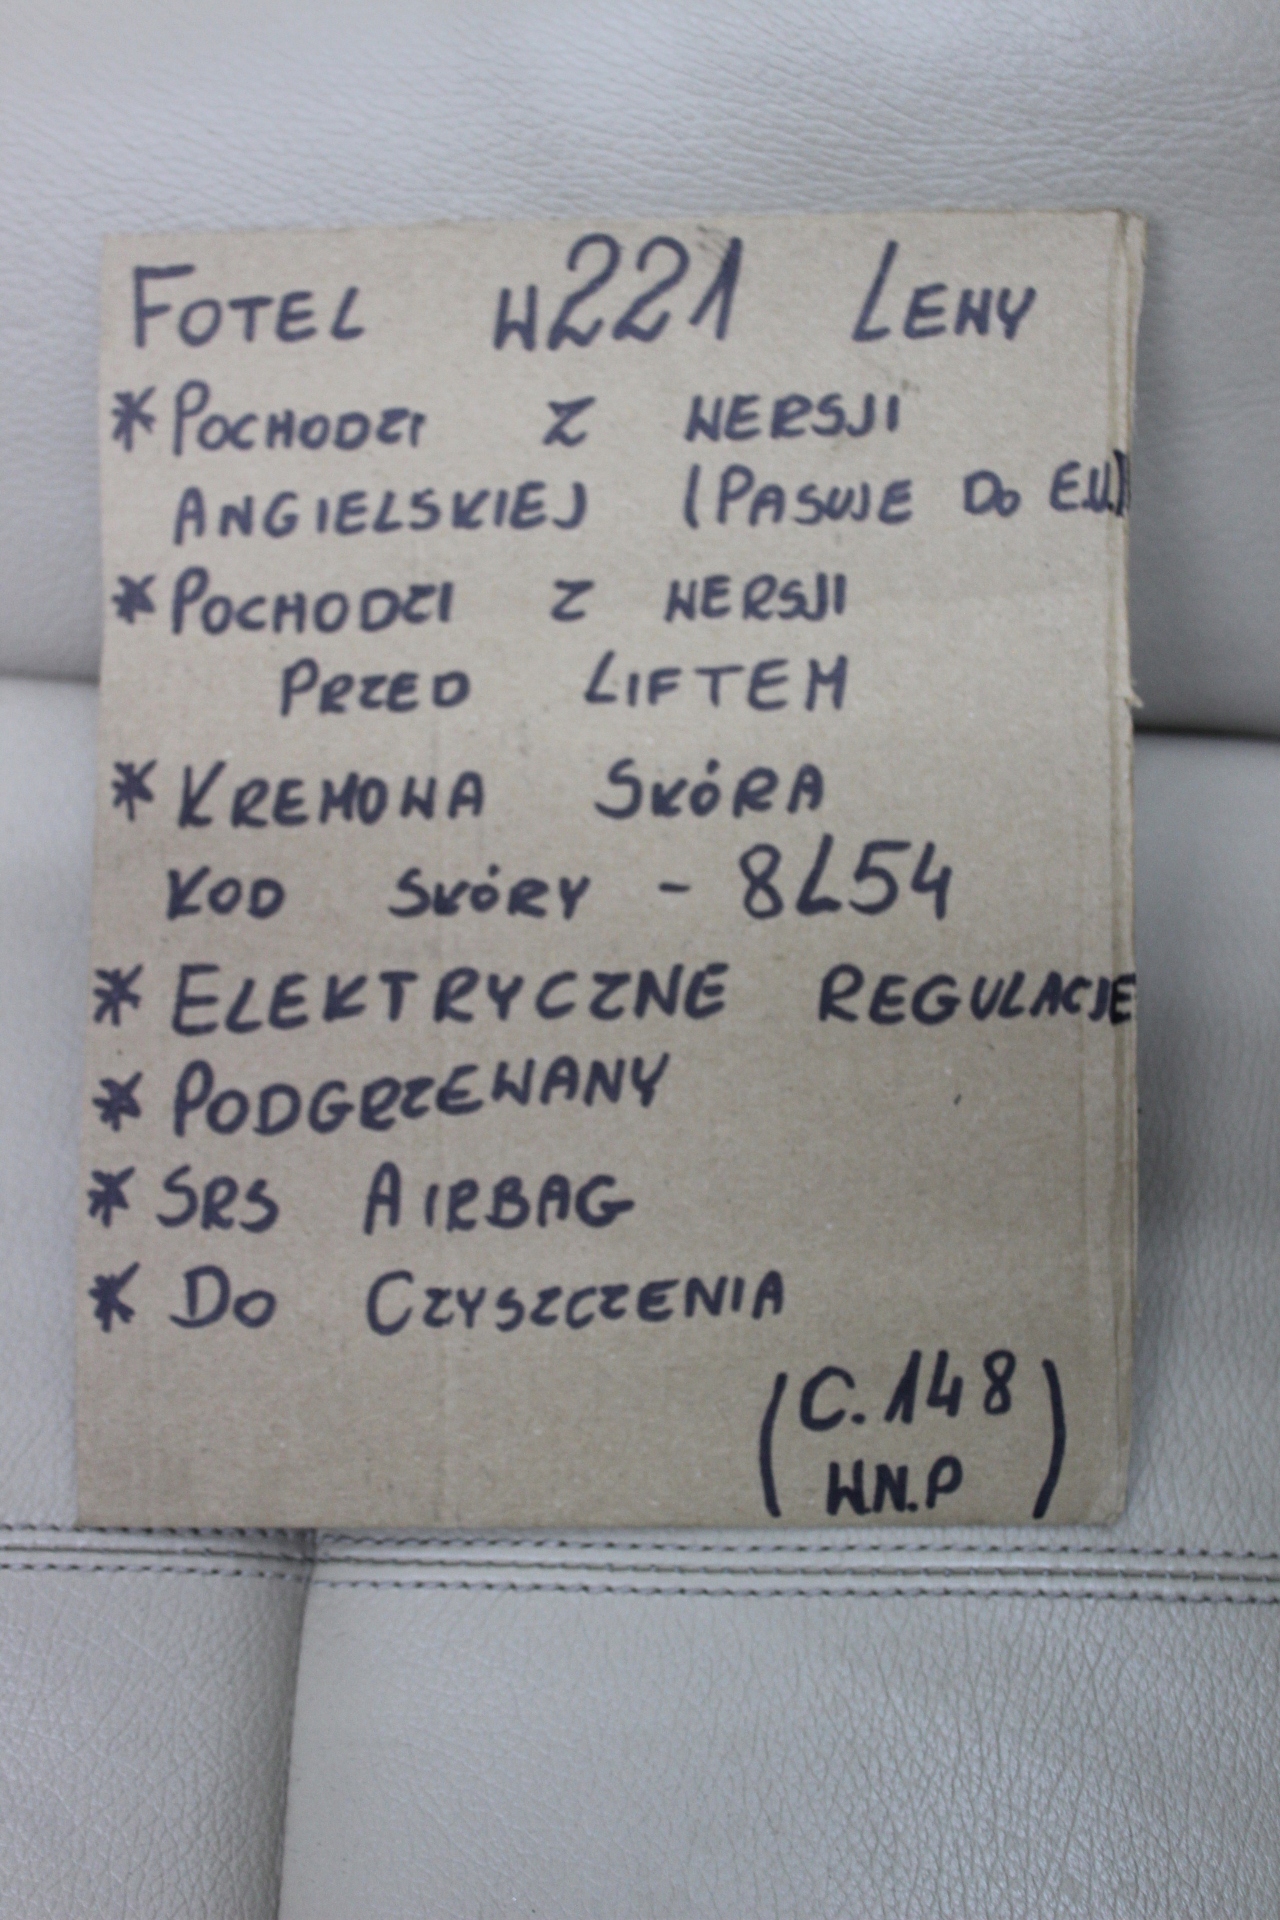 FOTEL W221 LEWY
* POCHODZI Z WERSJI
ANGIELSKIEJ (PASUJE DO E.U.)
* POCHODZI Z WERSJI
PRZED LIFTEM
* KREMOWA SKÓRA
KOD SKÓRY - 8L54
* ELEKTRYCZNE REGULACJE
* PODGRZEWANY
* SRS AIRBAG
* DO CZYSZCZENIA
(C.148
W.N.P)